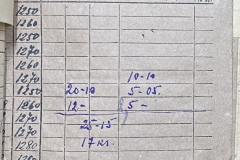 1250
1260
1250
1270
1260
1270 10-10
1250 20-10 5-05.
1260 12.- 5 -
1270
1270 25-15
1280 17 кг.